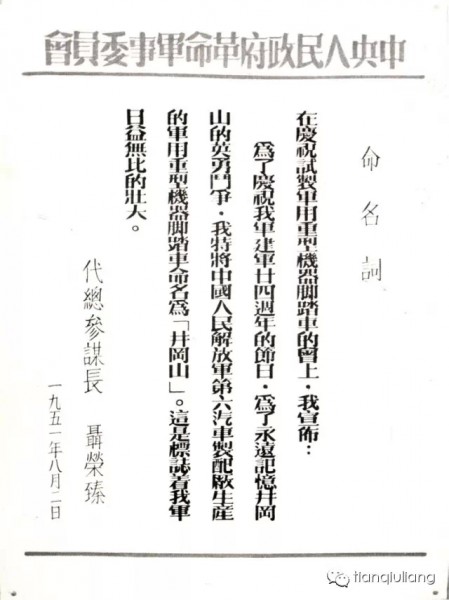 中央人民政府革命軍事委員會
命名詞
在慶祝試製軍用重型機器脚踏車的會上，我宣佈：
為了慶祝我軍建軍廿四週年的節日，為了永遠記憶井岡
山的英勇鬥爭，我特將中國人民解放軍第六汽車製配廠生産
的軍用重型機器脚踏車命名為「井岡山」。這是標誌着我軍
日益無比的壯大。
代總參謀長 聶榮臻
一九五一年八月二日
tianqiuliang